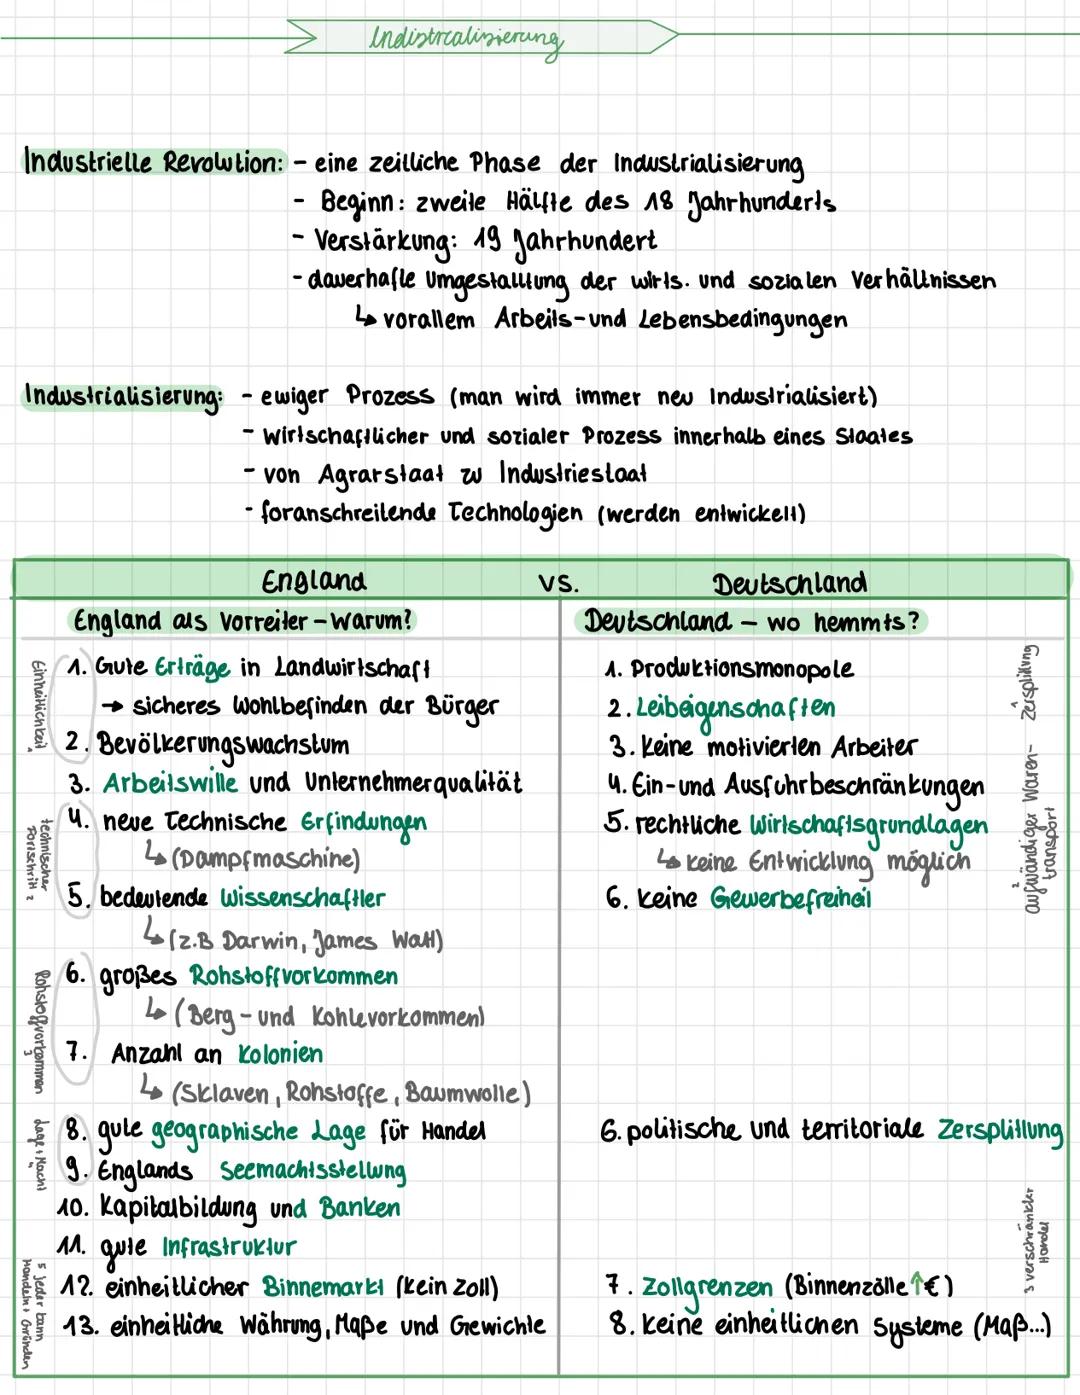 Indistrcalisierung
Industrielle Revolution: - eine zeitliche Phase der Industrialisierung
- Beginn: zweite Hälfte des 18 Jahrhunderts
- Verstärkung: 19 Jahrhundert
- dauerhafte Umgestalltung der wirts. und sozialen Verhältnissen
↳ vorallem Arbeits-und Lebensbedingungen
Industrialisierung: - ewiger Prozess (man wird immer neu Industrialisiert)
- wirtschaftlicher und sozialer Prozess innerhalb eines Staates
- von Agrarstaat zu Industriestaat
- foranschreitende Technologien (werden entwickelt)
England vs. Deutschland
England als Vorreiter - Warum?
Einheitlichkeit 1
1. Gute Erträge in Landwirtschaft
→ sicheres Wohlbefinden der Bürger
2. Bevölkerungswachstum
3. Arbeitswille und Unternehmerqualität
technischer
Fortschritt 2
4. neue Technische Erfindungen
↳ (Dampfmaschine)
5. bedeutende Wissenschaftler
↳ (z.B Darwin, James Watt)
Rohstoffvorkommen
3
6. großes Rohstoffvorkommen
↳ (Berg - und Kohlevorkommen)
7. Anzahl an Kolonien
↳ (Sklaven, Rohstoffe, Baumwolle)
Lage + Macht
8. gute geographische Lage für Handel
9. Englands Seemachtsstellung
10. Kapitalbildung und Banken
11. gute Infrastruktur
5 jeder kann
Handeln + Gründen
12. einheitlicher Binnemarkt (kein Zoll)
13. einheitliche Währung, Maße und Gewichte
Deutschland - wo hemmts?
1. Produktionsmonopole
2. Leibeigenschaften
3. Keine motivierten Arbeiter
4. Ein-und Ausfuhrbeschränkungen
5. rechtliche Wirtschaftsgrundlagen
↳ keine Entwicklung möglich
6. keine Gewerbefreiheit
1 Zersplittung
2 aufwändiger Waren-
transport
6. politische und territoriale Zersplittung
3 verschränkter
Handel
7. Zollgrenzen (Binnenzölle ↑€)
8. Keine einheitlichen Systeme (Maß...)